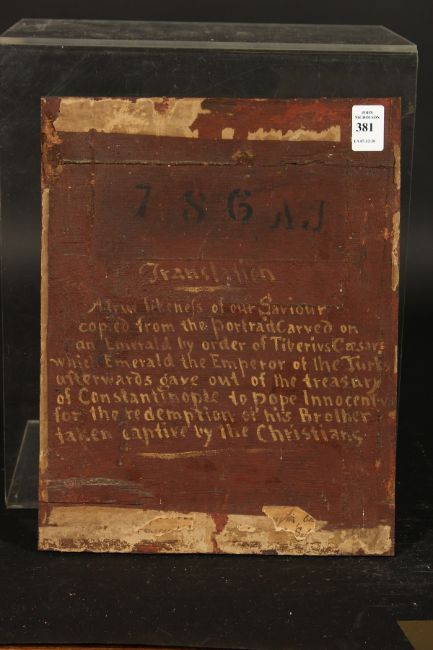 JOHN
NICHOLSON
381
EA 07.12.20
786 AJ
Translation
A True likeness of our Saviour
copied from the Portrait Carved on
an Emerald by order of Tiberius Cæsar
which Emerald the Emperor of the Turks
afterwards gave out of the treasury
of Constantinople to Pope Innocent
for the redemption of his Brother
taken captive by the Christians